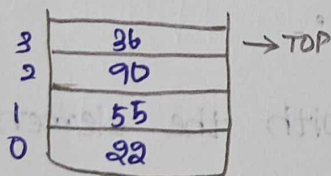 3 36 → TOP
2 90
1 55
0 22